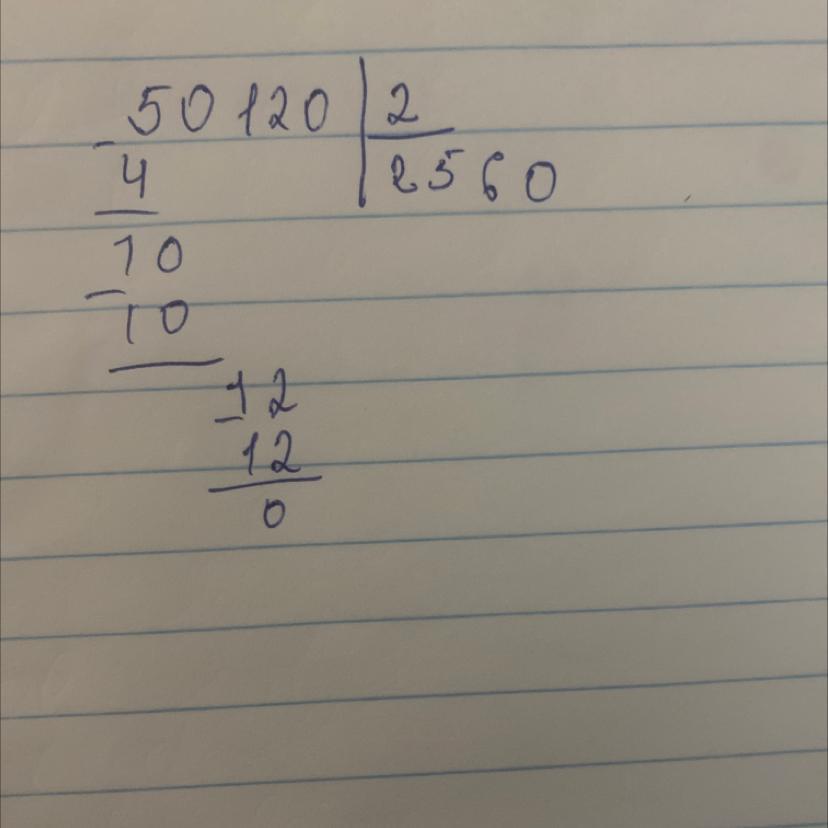 50 120 2
- 4 2560
10
- 10
12
- 12
0